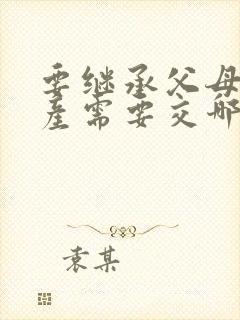 要继承父母
产需要交哪
袁某